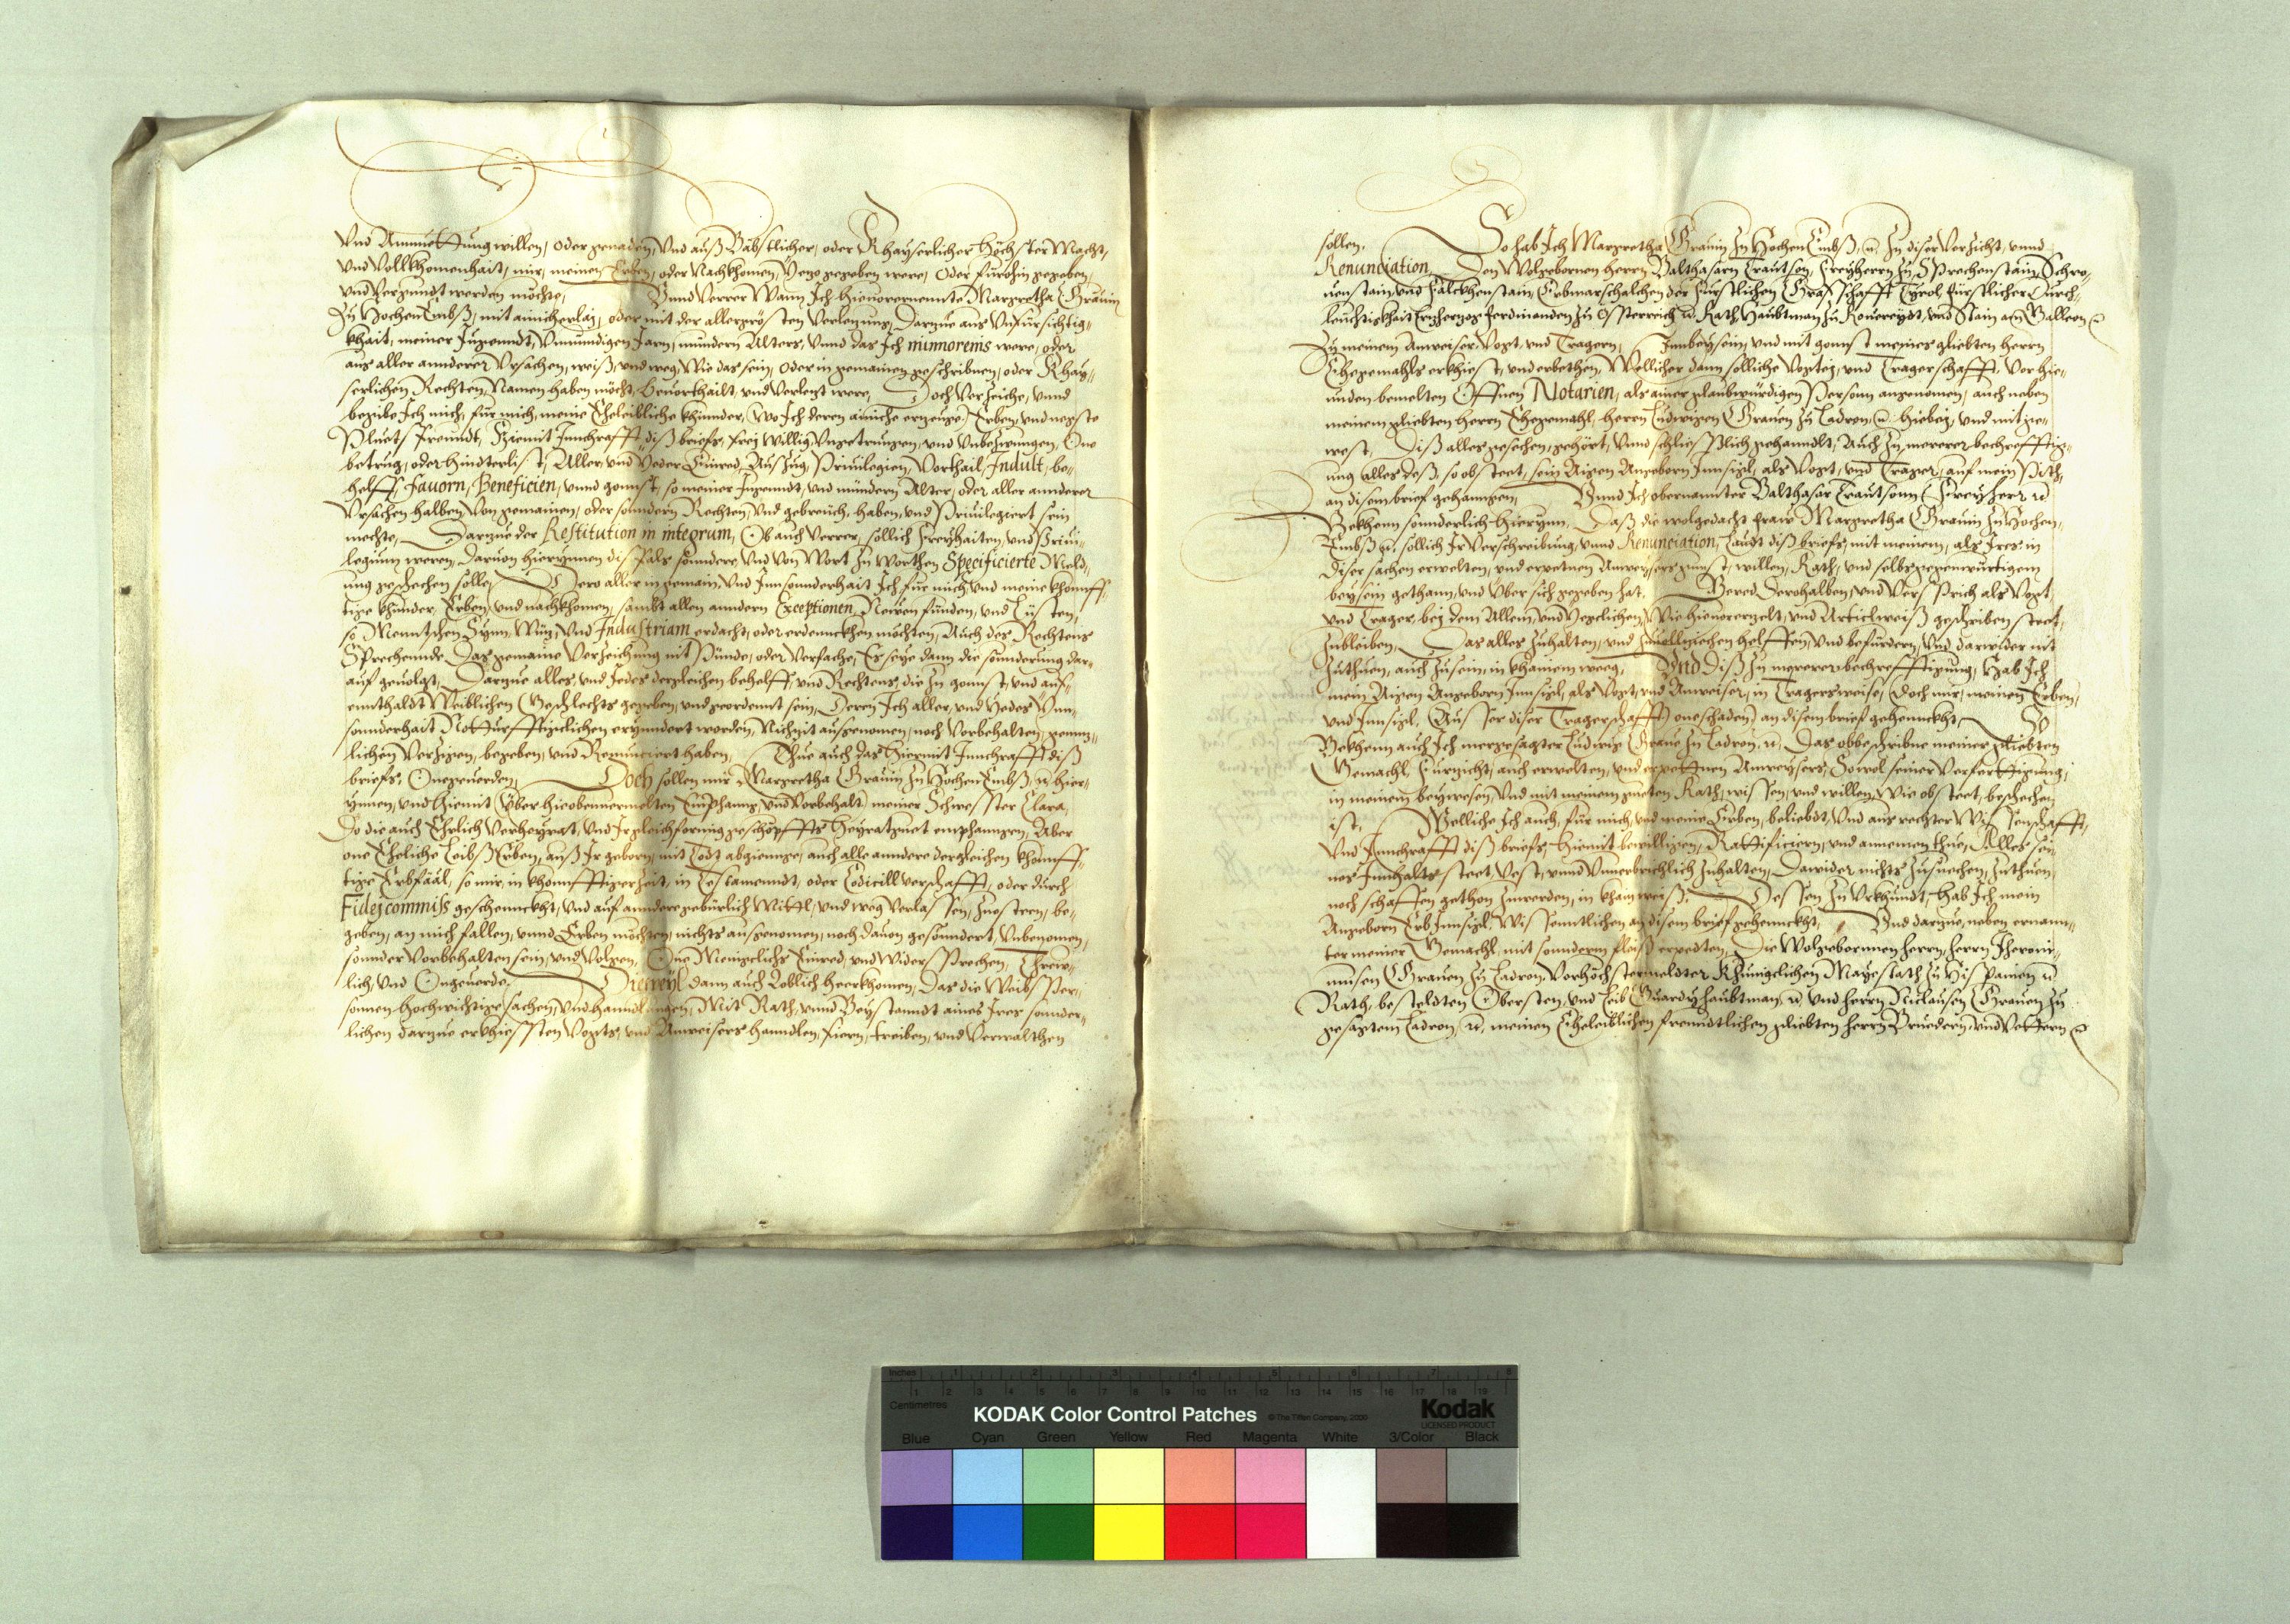 Vnd Anmuettung willen, oder genaden, vnd auß Bäbstlicher, oder Khayserlicher höchster Macht,
vnd Vollkhomenhait, mir, meinen Erben, oder Nachkhomen, Yezo gegeben were, Oder fürohin gegeben,
vnd vergundt werden möchte, Vnnd verrer Wann Ich hieuorernennte Margretha Gräuin
zu HochenEmbß, mit ainicherlaj, oder mit der allergrösten Verlezung, Darzue aus Vnfürsichtig-
khait, meiner Jugenndt, Vnmündigen Jarn, mündern Alters, Vnnd das Ich minnorenis were, oder
aus aller annderer Vrsachen, weiß, vnd weg, Wie das sein, Oder in gemainen geschribnen, oder Khay-
serlichen Rechten, Namen haben möcht, Beuorthailt, vnd Verlezt were, Doch Verzeiche, vnnd
begibe Ich mich, für mich, meine Eheleibliche khinnder, (wo Ich deren ainiche erzeuge) Erben, vnd negste
Pluets freundt, Hiemit Inn chrafft diß briefs, frej willig, Vngetrungen, vnd Vnbezwungen, One
betrug, oder hindterlist, Aller, vnd Yeder Einred, Auszug, Priuilegien, Vorthail, Indult, be-
helff, fauorn, Beneficien, vnnd gonnst, so meiner Jugenndt, vnd mündern Alter, oder aller annderer
Vrsachen halben, von gemainen, oder sonndern Rechten, Vnd gebreuch, haben, vnd Priuilegiert sein
mechte, Darzue der Restitution in integrum, Ob auch Verrer, sollich Freyhaiten, vnd Priui-
legium weren, Daruon hierynnen disfals sonndere, Vnd von Wort zu Worthen Specificierte Meld-
ung geschechen solle, Dero aller in gemain, Vnd Innsonnderhait Ich für mich, vnd meine khonnff-
tige khinder, Erben, vnd nachkhomen, sambt allen anndern Exceptionen, Neüen fünden, vnd Lüsten,
so Menntschen Synn, Wüz, vnd Industriam erdacht, oder erdennckhen möchten, Auch des Rechtens
Sprechennde, Das gemaine Verzeichung nit Pünde, oder Verfache, Es seye dann die sonnderung dar-
auf geuolgt, Darzue alles, vnd Jedes dergleichen behelff, vnd Rechtens, die zu gonnst, vnd auf-
enthaldt Weiblichen Geschlechts gegeben, vnd geordennt sein, Deren Ich aller, vnd Yedes Inn-
sonnderhait Notturfftigclichen eryndert worden, Nichzit ausgenomen, noch Vorbehalten, gennz-
lichen Verzigen, begeben, vnd Renunciert haben, Thue auch das hiermit Inn chrafft diß
briefs, Onegeuerden, Doch sollen mir, Margretha Gräuin zu HochenEmbß, &c. hier-
ynnen, vnd hiemit (Über hieobenuermelten Emphanng, vnd Vorbehalt) meiner Schwesster Clara,
Do die auch Ehrlich Verheyrat, vnd Ir gleichförmig geschöpffts Heyratguet emphanngen, Aber
one Eheliche Leibß Erben, auß Ir geborn, mit Todt abgiennge, auch alle anndere dergleichen khonnff-
tige Erbfääl, so mir, in khonnfftiger Zeit, in Testamenndt, oder Codicill verschafft, oder durch
Fidejcommiss geschennckht, vnd auf anndere gebürlich Mittl, vnd weg Verlassen, Zuesteen, be-
geben, an mich fallen, vnnd Erben möchten, nichts ausgenomen, noch dauon gesonndert, Vnbenomen,
sonnder Vorbehalten sein, vnd Volgen, One Menigclichs Einred, vnd Widersprechen, Threw-
lich, Vnd Ongeuerde, Dieweyl dann auch Loblich Heerkhomen, Das die Weibs Per-
sonen hochwichtige sachen, Vnd hanndlungen, Mit Rath, vnnd Beystanndt aines Ires sonnder-
lichen darzue erkhießten Vogts, vnd Anweisers hanndlen, fiern, treiben, vnd Verwalthen
sollen, So hab Ich Margretha Gräuin zu HochenEmbß, &c. zu diser Verzicht, vnnd
Renunciation, Den Wolgebornen herrn Balthasarn Trautson, Freyherrn zu Sprechenstain, Schro-
uenstain, vnd Falckhenstain, Erbmarschalchen der Fürstlichen Graffschafft Tyrol, Fürstlicher Durch-
leuchtikhait Erzherzog Ferdinanden zu Össterreich &c. Rath, Haubtman zu Rouereydt, vnd Stain am Galleon &c.
zu meinem Anweiser, Vogt, vnd Tragern, Innbeysein, vnd mit gonnst meines gliebten herrn
Ehegemahls erkhiest, vnd erbethen, Wöllicher dann solliche Vogtej, vnd Tragerschafft, Vor hie-
unden bemelten Offnen Notarien, als ainer glaubwürdigen Person angenomen, auch neben
meinem gliebten herrn Ehegemahl, herrn Ludwigen Grauen zu Ladron, &c. hiebej, vnd mit ge-
west, Diß alles gesechen, gehört, vnnd schließlich gehanndlt, Auch zu mererer bechrefftig-
ung alles deß, so ob steet, sein Aigen Angeborn Innsigl, als Vogt, vnd Trager, auf mein Pith,
an disem brief gehanngen, Vnnd Ich obernannter Balthasar Trautsonn Freyherr &c.
Bekhenn sonnderlich hierynn, Daß die wolgedacht fraw Margretha Gräuin zu Hochen-
Embß &c. sollich Ir Verschreibung, vnnd Renunciation, Laudt diß briefs, mit meinem, als Ires in
diser sachen erwelten, vnd erpetnen Anweysers gunst, willen, Rath, vnd selbs gegenwürtigem
beysein gethann, vnd Über sich gegeben hat, Gered Derohalben, vnd Versprich als Vogt,
vnd Trager, bej dem Allem, vnd Yeglichen, Wie hieuorerzelt, vnd Articlweiß geschriben steet,
Zubleiben, Das alles Zuhalten, vnd Zuuollziechen helffen, Vnd befürdern, Vnd darwider nit
Zuthuen, auch Zusein, in khainem weeg, Vnd Diß zu mererer bechrefftigung, Hab Ich
mein Aigen Angeborn Innsigl, als Vogt, vnd Anweiser, in Tragersweise, (doch mir, meinen Erben,
vnd Innsigl, Ausser diser Tragerschafft one schaden) an disem brief gehennckht, So
Bekhenn auch Ich mergesagter Ludwig Graue zu Ladron, &c. Das obbeschribne meiner gliebten
Gemachl Fürzicht, auch erwelten, vnd erpettnen Anweysers, Sowol seiner Verferttigung,
in meinem beywesen, Vnd mit meinem gueten Rath, wissen, vnd willen, Wie ob steet, beschechen
ist, Wölliche Ich auch, für mich, vnd meine Erben, beliebdt, Vnd aus rechter Wissenschafft,
Vnd Inn chrafft diß briefs, hiemit bewilligen, Rattificiern, vnd annemen thue, Alles sei-
nes Innhalts, steet, Vest, vnnd Vnuerbrichlich Zuhalten, Dawider nichts Zusuechen, Zuthuen,
noch schaffen gethon Zuwerden, in khain weiß, Dessen zu Vrkhundt, hab Ich mein
Angeborn Erb Innsigl, Wissenntlichen an disem brief gehennckht, Vnd darzue, neben ernann-
ter meiner Gemachl, mit sonnderm fleiß erpedten, Die Wolgebornnen herrn, herrn Iheroni-
musen Grauen zu Ladron, Vorhöchstermeldter Khüniglichen Mayestath zu Hispanien &c.
Rath, bestelldten Obersten, vnd Leib Guardj haubtman, &c. vnd herrn Niclausen Grauen zu
gesagtem Ladron, &c. meinen Eheleiblichen freundtlichen gliebten herrn Bruedern, vnd Vettern &c.
KODAK Color Control Patches
© The Tiffen Company, 2000
Kodak
LICENSED PRODUCT
Inches
Centimetres
Blue Cyan Green Yellow Red Magenta White 3/Color Black